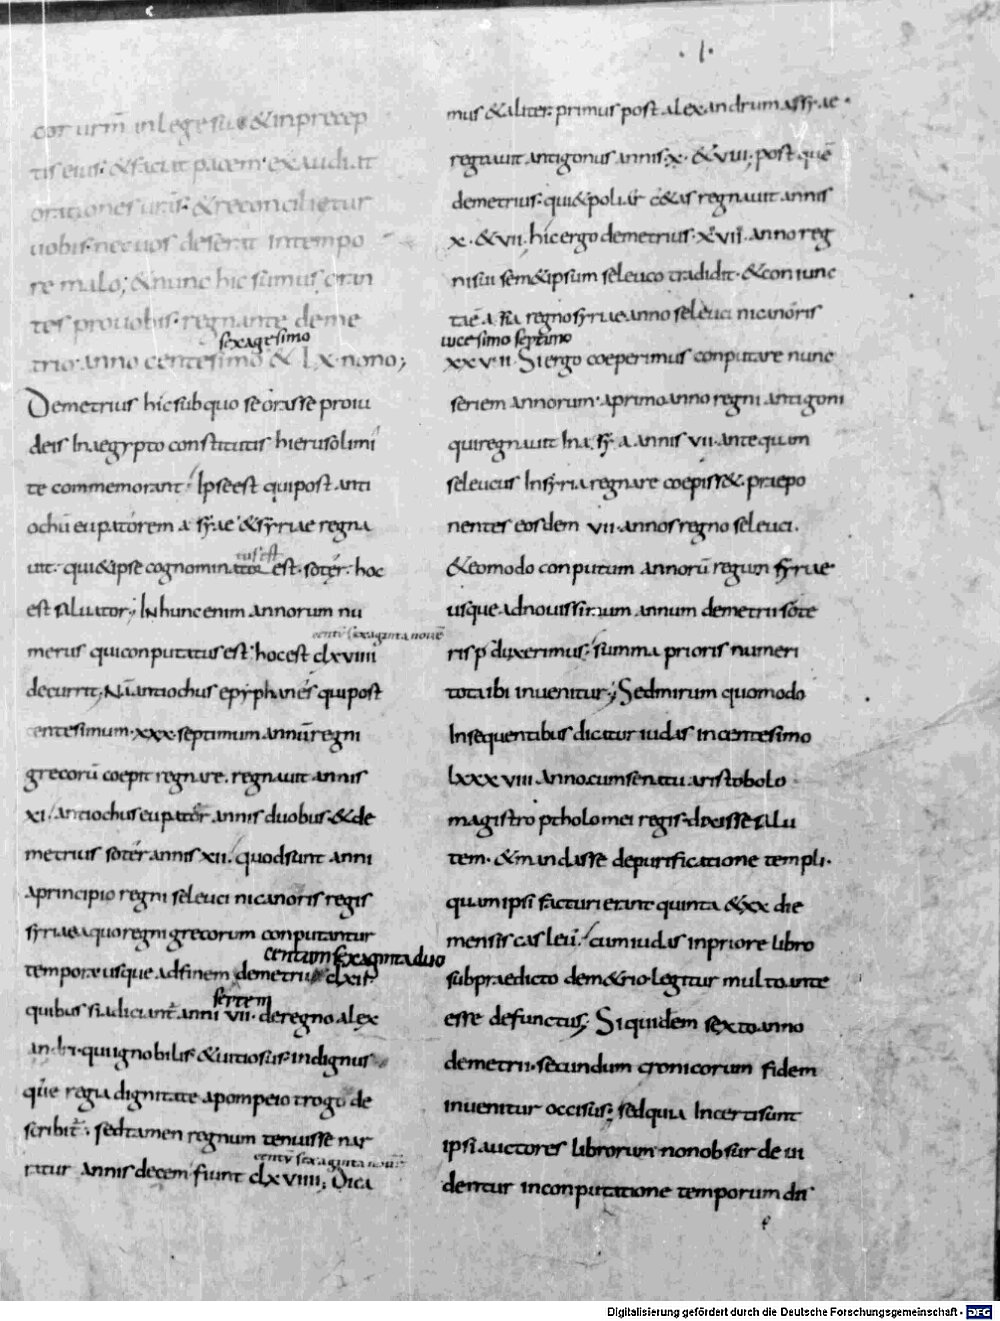 ·I·
cor urm̄ in lege sua & in precep
tis eius· & faciat pacem· exaudiat
orationes uras· & reconcilietur
uobis· nec uos deserat in tempo
re malo; & nunc hic sumus oran
tes pro uobis· regnante deme
sexagesimo
trio· anno centesimo & LX· nono;
Demetrius hic sub quo se orasse proiu
deis In aegypto constitutis hierusolimi
te commemorant· Ipse est qui post anti
ochū eupatorem asyae· & syriae regna
uit· qui & ipse cognominatus est· soter· hoc
est saluator; IN hunc enim annorum nu
centū sexaginta nouē
merus qui conputatus est· hoc est clxviiii
decurrit; Nā antiochus epyphanes qui post
centesimum· xxx· septimum annū regni
grecorū coepit regnare· regnauit annis
xi· antiochus eupator annis duobus· & de
metrius soter annis xii· quod sunt anni
a principio regni seleuci nicanoris regis
syriae a quo regni grecorum conputantur
centum sexaginta duo
tempora usque ad finem demetrii clxii·
septem
quibus si adiciant anni vii· de regno alex
andri· qui ignobilis & uitiosus· indignus
quē regia dignitate a pompeio trogo de
scribit· sed tamen regnum tenuisse nar
centū sexaginta nouē
ratur annis decem· fiunt clxviiii; Dica
mus & aliter· primus post alexandrum assyae·
regnauit antigonus annis· x· & viii; post quē
demetrius· qui & poliar c&&is regnauit annis
x· & vii· hic ergo demetrius· xvii· anno reg
ni sui sem&ipsum seleuco tradidit· & coniunc
ta ē a sia regno syriae anno seleuci nicanoris
uicesimo septimo
xxvii· Si ergo coeperimus conputare nunc
seriem annorum· a primo anno regni antigoni
qui regnauit In asya annis vii· ante quam
seleucus In syria regnare coepiss&· praepo
nentes eosdem vii· annos regno seleuci·
& eo modo conputum annorū regum syriae
usque ad nouissimum annum demetrii sote
ris pduxerimus· summa prioris numeri
tota ibi inuenitur; Sed mirum quomodo
In sequentibus dicatur iudas in centesimo
lxxxviii· Anno cum senatu aristobolo·
magistro ptholomei regis· dixisse salu
tem· & mandasse de purificatione templi·
quam ipsi facturi erant quinta & xx die
mensis casleu· cum iudas in priore libro
sub praedicto dem&rio legitur multo ante
esse defunctus; Siquidem sexto anno
demetrii· secundum cronicorum fidem
inuenitur occisus; sed quia Incerti sunt
ipsi auctores librorum non obsur de ui
detur in conputatione temporum dis
Digitalisierung gefördert durch die Deutsche Forschungsgemeinschaft - DFG